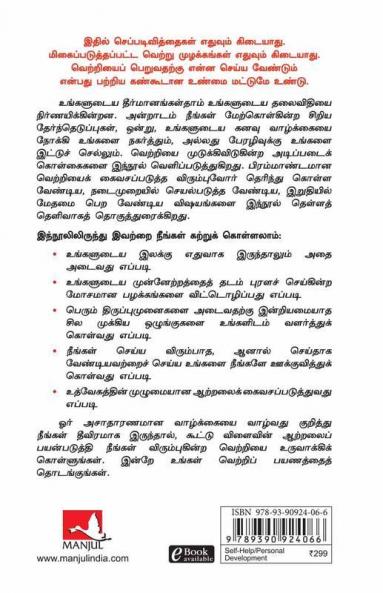 இதில் செப்படிவித்தைகள் எதுவும் கிடையாது.
மிகைப்படுத்தப்பட்ட வெற்று முழக்கங்கள் எதுவும் கிடையாது.
வெற்றியைப் பெறுவதற்கு என்ன செய்ய வேண்டும்
என்பது பற்றிய கண்கூடான உண்மை மட்டுமே உண்டு.
உங்களுடைய தீர்மானங்கள்தாம் உங்களுடைய தலைவிதியை
நிர்ணயிக்கின்றன. அன்றாடம் நீங்கள் மேற்கொள்கின்ற சிறிய
தேர்ந்தெடுப்புகள், ஒன்று, உங்களுடைய கனவு வாழ்க்கையை
நோக்கி உங்களை நகர்த்தும், அல்லது பேரழிவுக்கு உங்களை
இட்டுச் செல்லும். வெற்றியை முடுக்கிவிடுகின்ற அடிப்படைக்
கொள்கைகளை இந்நூல் வெளிப்படுத்துகிறது. பிரம்மாண்டமான
வெற்றியைக் கைவசப்படுத்த விரும்புவோர் தெரிந்து கொள்ள
வேண்டிய, நடைமுறையில் செயல்படுத்த வேண்டிய, இறுதியில்
மேதமை பெற வேண்டிய விஷயங்களை இந்நூல் தெள்ளத்
தெளிவாகத் தொகுத்துரைக்கிறது.
இந்நூலிலிருந்து இவற்றை நீங்கள் கற்றுக் கொள்ளலாம்:
• உங்களுடைய இலக்கு எதுவாக இருந்தாலும் அதை
அடைவது எப்படி
• உங்களுடைய முன்னேற்றத்தைத் தடம் புரளச் செய்கின்ற
மோசமான பழக்கங்களை விட்டொழிப்பது எப்படி
• பெரும் திருப்புமுனைகளை அடைவதற்கு இன்றியமையாத
சில முக்கிய ஒழுங்குகளை உங்களிடம் வளர்த்துக்
கொள்வது எப்படி
• நீங்கள் செய்ய விரும்பாத, ஆனால் செய்தாக
வேண்டியவற்றைச் செய்ய உங்களை நீங்களே ஊக்குவித்துக்
கொள்வது எப்படி
• உத்வேகத்தின் முழுமையான ஆற்றலைக் கைவசப்படுத்துவது
எப்படி
ஓர் அசாதாரணமான வாழ்க்கையை வாழ்வது குறித்து
நீங்கள் தீவிரமாக இருந்தால், கூட்டு விளைவின் ஆற்றலைப்
பயன்படுத்தி நீங்கள் விரும்புகின்ற வெற்றியை உருவாக்கிக்
கொள்ளுங்கள். இன்றே உங்கள் வெற்றிப் பயணத்தைத்
தொடங்குங்கள்.
ISBN 978-93-90924-06-6
9 789390 924066
MANJUL
www.manjulindia.com
eBook
available
Self-Help/Personal
Development
₹299